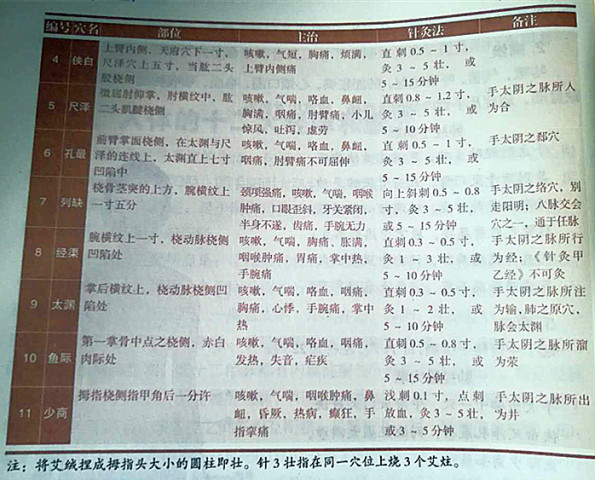 编号 穴名 部位 主治 针灸法 备注
4 侠白 上臂内侧，天府穴下一寸，尺泽穴上五寸，当肱二头肱桡侧 咳嗽，气短，胸痛，烦满，上臂内侧痛 直刺0.5～1寸，灸3～5壮，或5～15分钟
5 尺泽 微屈肘仰掌，肘横纹中，肱二头肌腱桡侧 咳嗽，气喘，咯血，鼻衄，胸满，咽痛，肘臂痛，小儿惊风，吐泻，虚劳 直刺0.8～1.2寸，灸3～5壮，或5～10分钟 手太阴之脉所入为合
6 孔最 前臂掌面桡侧，在太渊与尺泽的连线上，太渊直上七寸凹陷中 咳嗽，气喘，咯血，鼻衄，咽痛，肘臂痛不可屈伸 直刺0.5～1寸，灸3～5壮，或5～15分钟 手太阴之郄穴
7 列缺 桡骨茎突的上方，腕横纹上一寸五分 颈项强痛，咳嗽，气喘，咽喉肿痛，口眼歪斜，牙关紧闭，半身不遂，齿痛，手腕无力 向上斜刺0.5～0.8寸，灸3～5壮，或5～15分钟 手太阴之络穴，别走阳明；八脉交会穴之一，通于任脉
8 经渠 腕横纹上一寸，桡动脉桡侧凹陷处 咳嗽，气喘，胸痛，胀满，咽喉肿痛，胃痛，掌中热，手腕痛 直刺0.3～0.5寸，灸1～3壮，或5～10分钟 手太阴之脉所行为经；《针灸甲乙经》不可灸
9 太渊 掌后横纹上，桡动脉桡侧凹陷处 咳嗽，气喘，咯血，咽痛，胸痛，心悸，手腕痛，掌中热 直刺0.3～0.5寸，灸1～2壮，或5～10分钟 手太阴之脉所注为输，肺之原穴，脉会太渊
10 鱼际 第一掌骨中点之桡侧，赤白肉际处 咳嗽，气喘，咯血，咽痛，发热，失音，疟疾 直刺0.5～0.8寸，灸3～5壮，或5～15分钟 手太阴之脉所溜为荥
11 少商 拇指桡侧指甲角后一分许 咳嗽，气喘，咽喉肿痛，鼻衄，昏厥，热病，癫狂，手指挛痛 浅刺0.1寸，点刺放血，灸3～5壮，或3～5分钟 手太阴之脉所出为井
注：将艾绒捏成拇指头大小的圆柱即壮。针3壮指在同一穴位上烧3个艾炷。